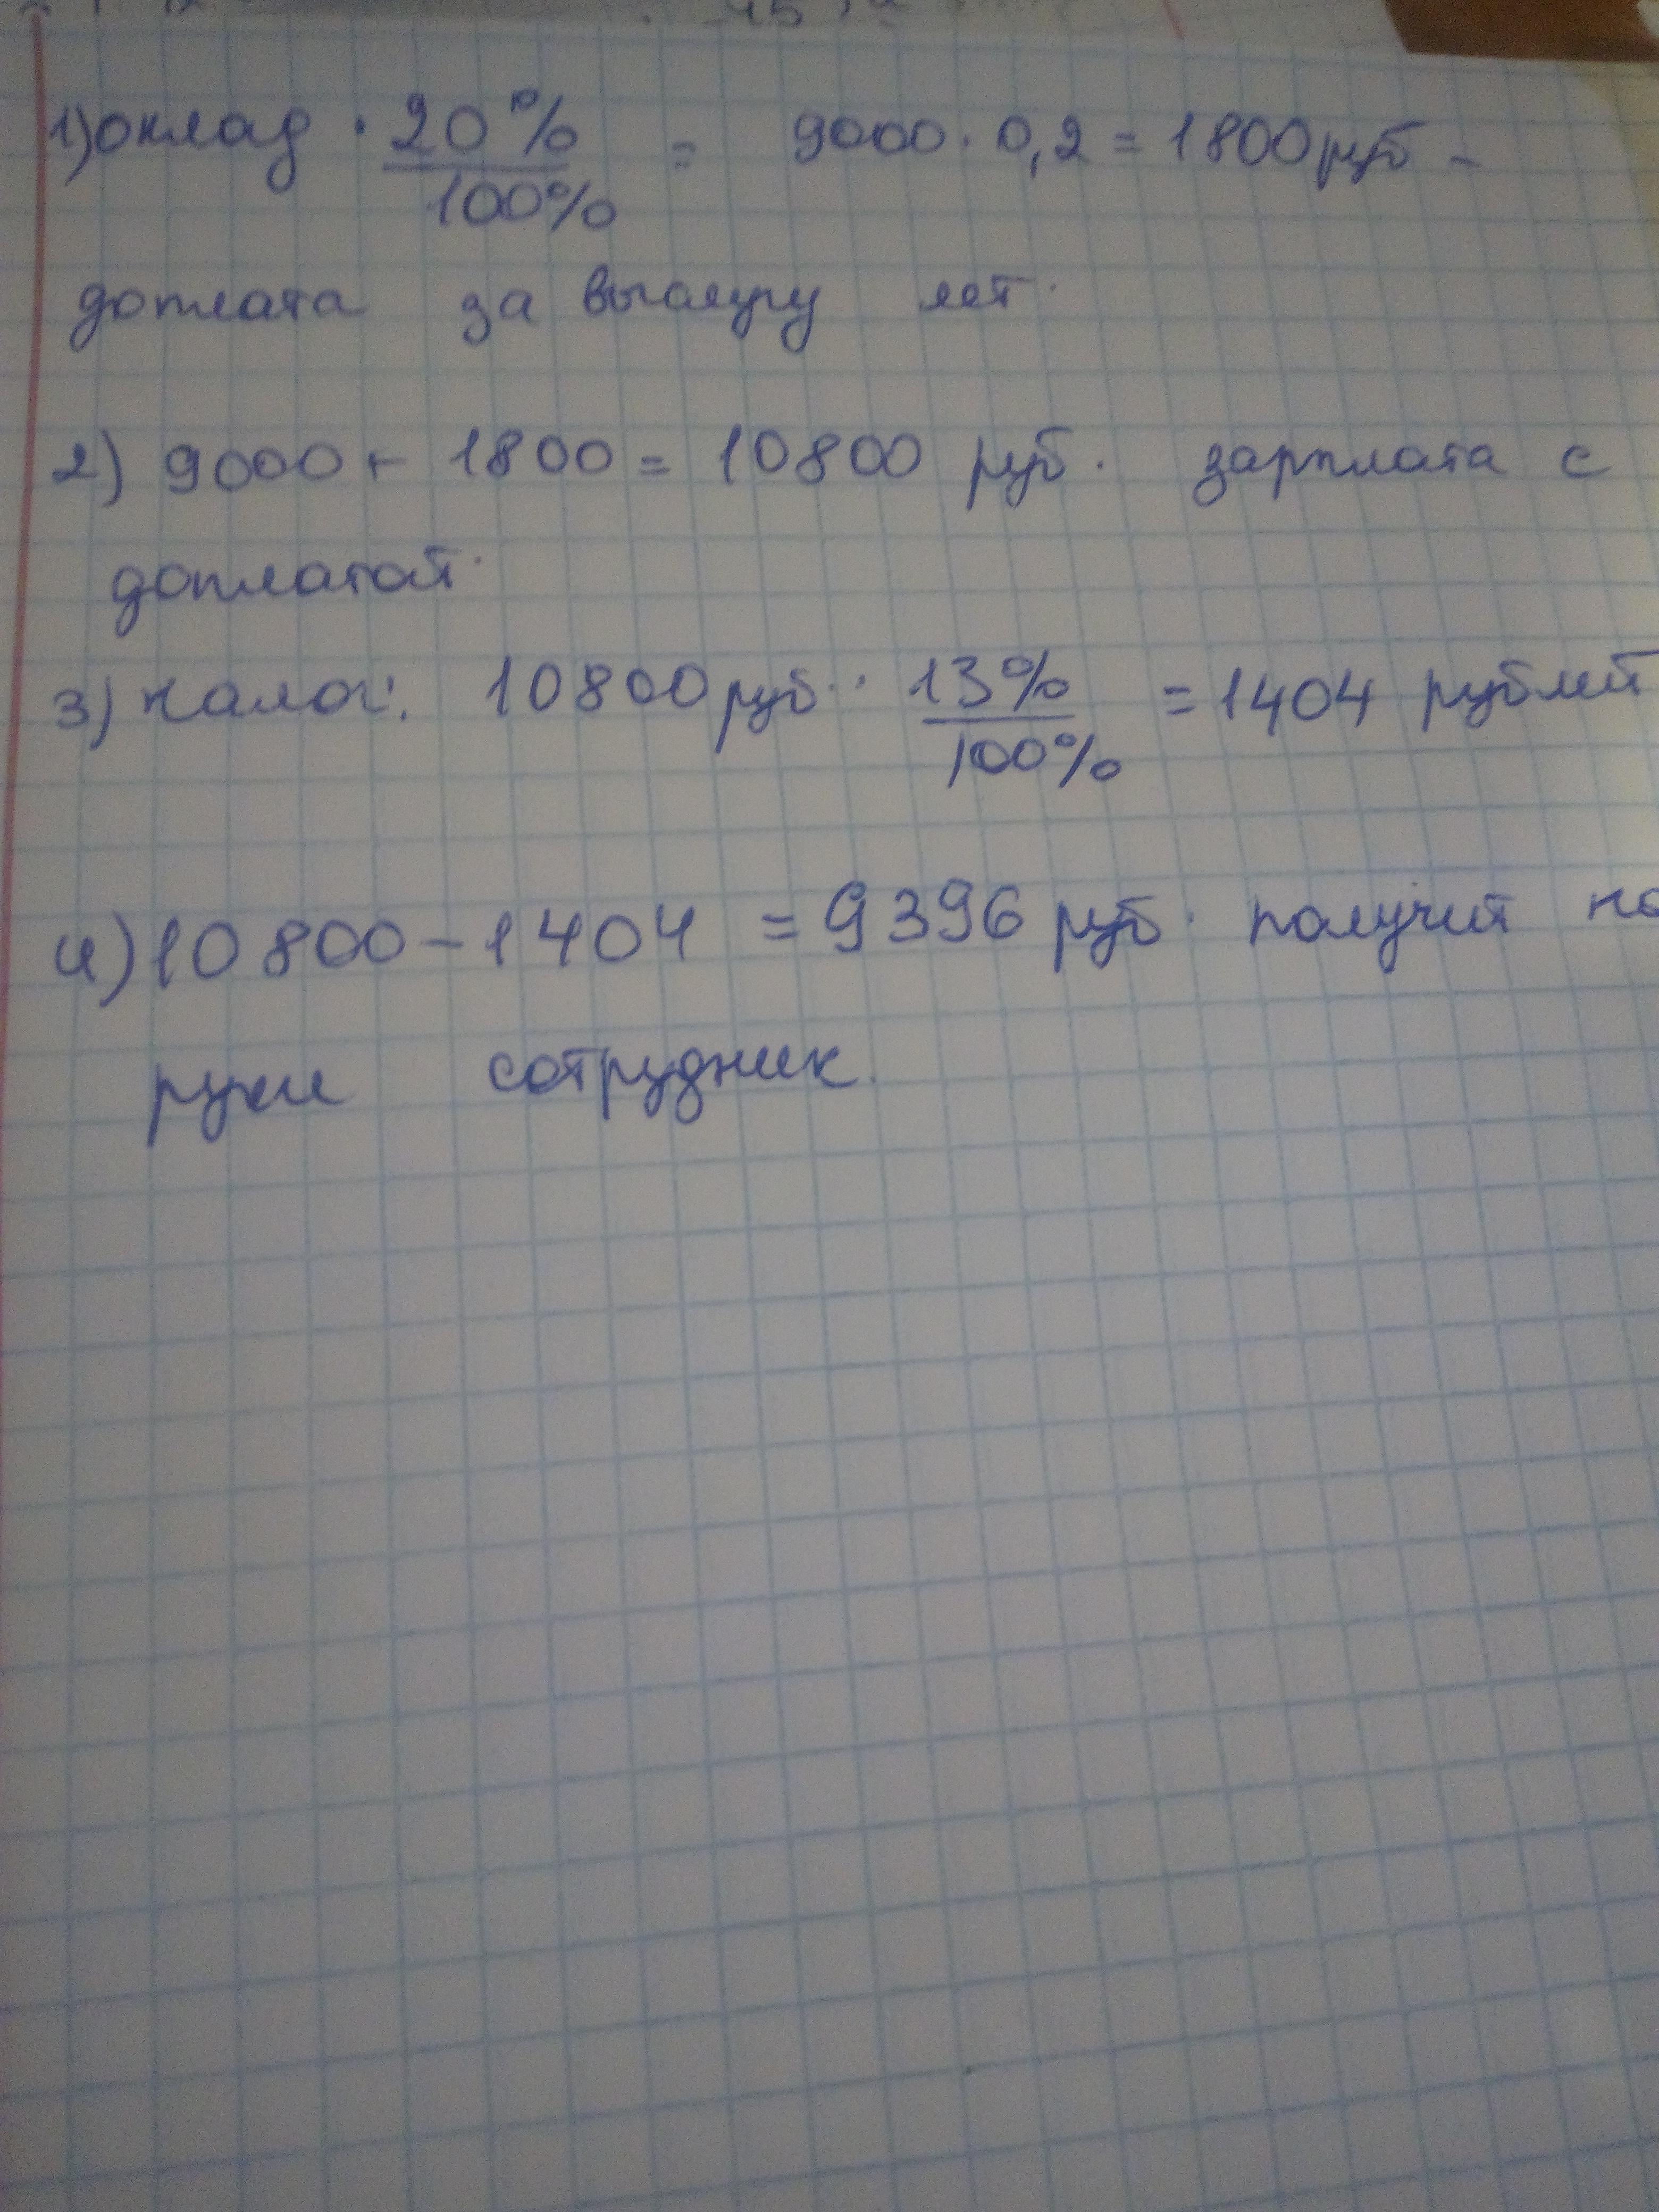 1) оклад · 20% / 100% = 9000 · 0,2 = 1800 руб -
доплата за выслугу лет.
2) 9000 + 1800 = 10800 руб. зарплата с
доплатой.
3) налог: 10800 руб · 13% / 100% = 1404 рублей
4) 10800 - 1404 = 9396 руб. получит на
руки сотрудник.